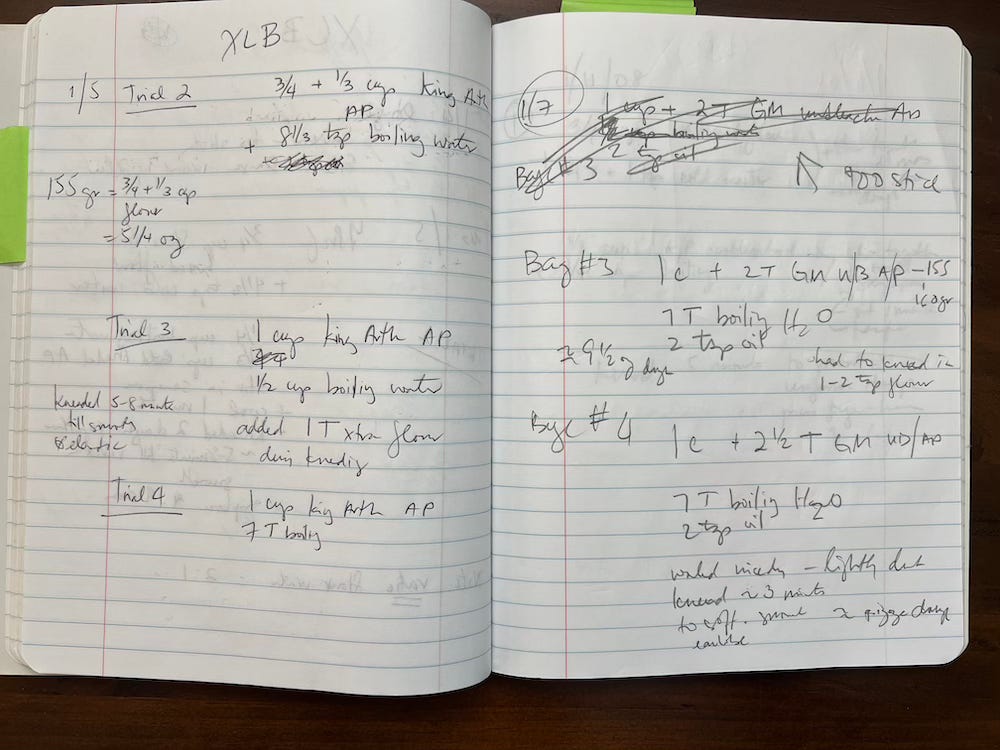 XLB
1/5 Trial 2 3/4 + 1/3 cup King Arth
AP
+ 8 1/3 tsp boiling water
155 gr = 3/4 + 1/3 cup
flour
= 5 1/4 oz
Trial 3 1 cup King Arth AP
1/2 cup boiling water
kneaded 5-8 minute
till smooth
& elastic
added 1T xtra flour
during kneading
Trial 4 1 cup King Arth AP
7 T boiling
1/7 1 cup + 2 T GM unbleach AP
2 tsp oil
#3
900 stick
#3 1 c + 2T GM u/B A/P - 155
160 gr
7 T boiling H2O
2 tsp oil
9 1/2
had to knead in
1-2 tsp flour
#4 1 c + 2 1/2 T GM UB/AP
7 T boiling H2O
2 tsp oil
worked nicely - lightly dust
knead ~ 3 minutes
to soft
earlobe